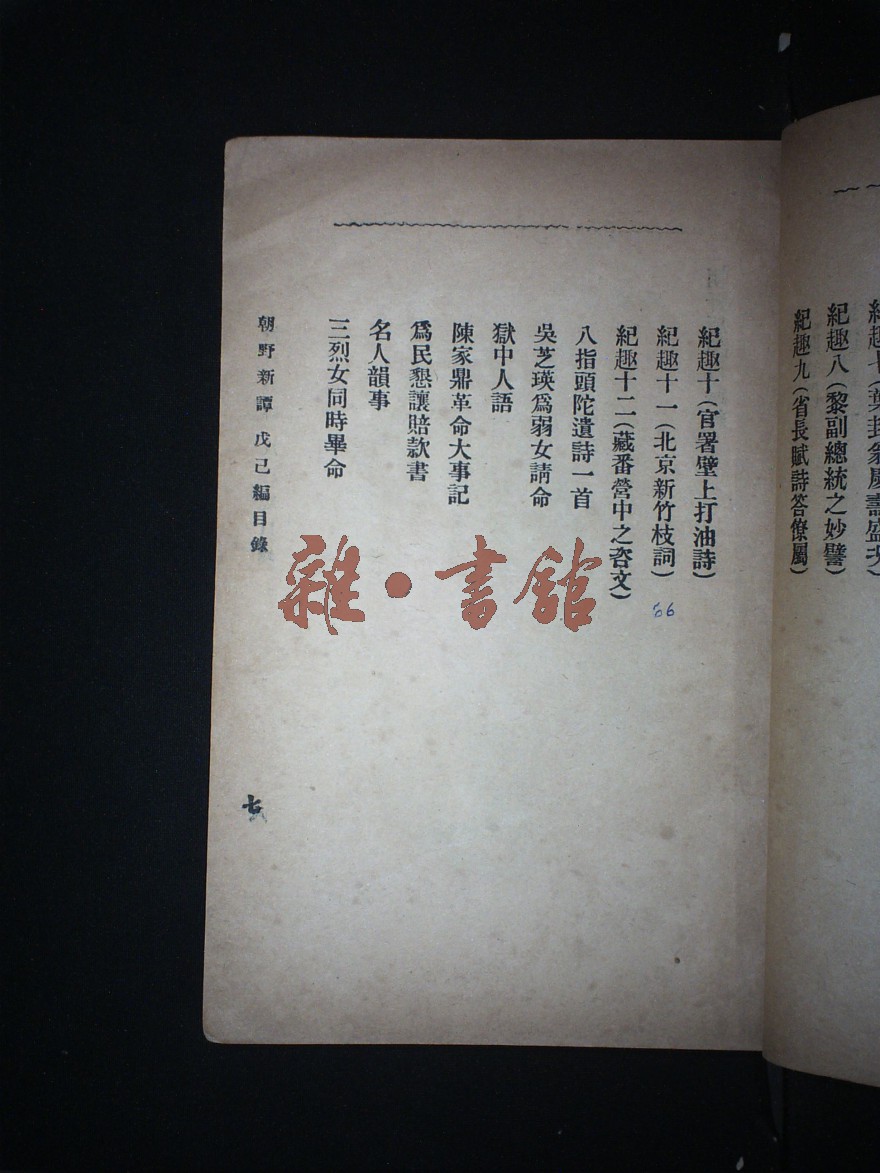 紀趣八（黎副總統之妙譬）
紀趣九（省長賦詩答僚屬）
紀趣十（官署壁上打油詩）
紀趣十一（北京新竹枝詞）
56
紀趣十二（藏番營中之咨文）
八指頭陀遺詩一首
吳芝瑛爲弱女請命
獄中人語
陳家鼎革命大事記
爲民懇讓賠款書
名人韻事
三烈女同時畢命
朝野新譚 戊己編目錄
七
雜·書館